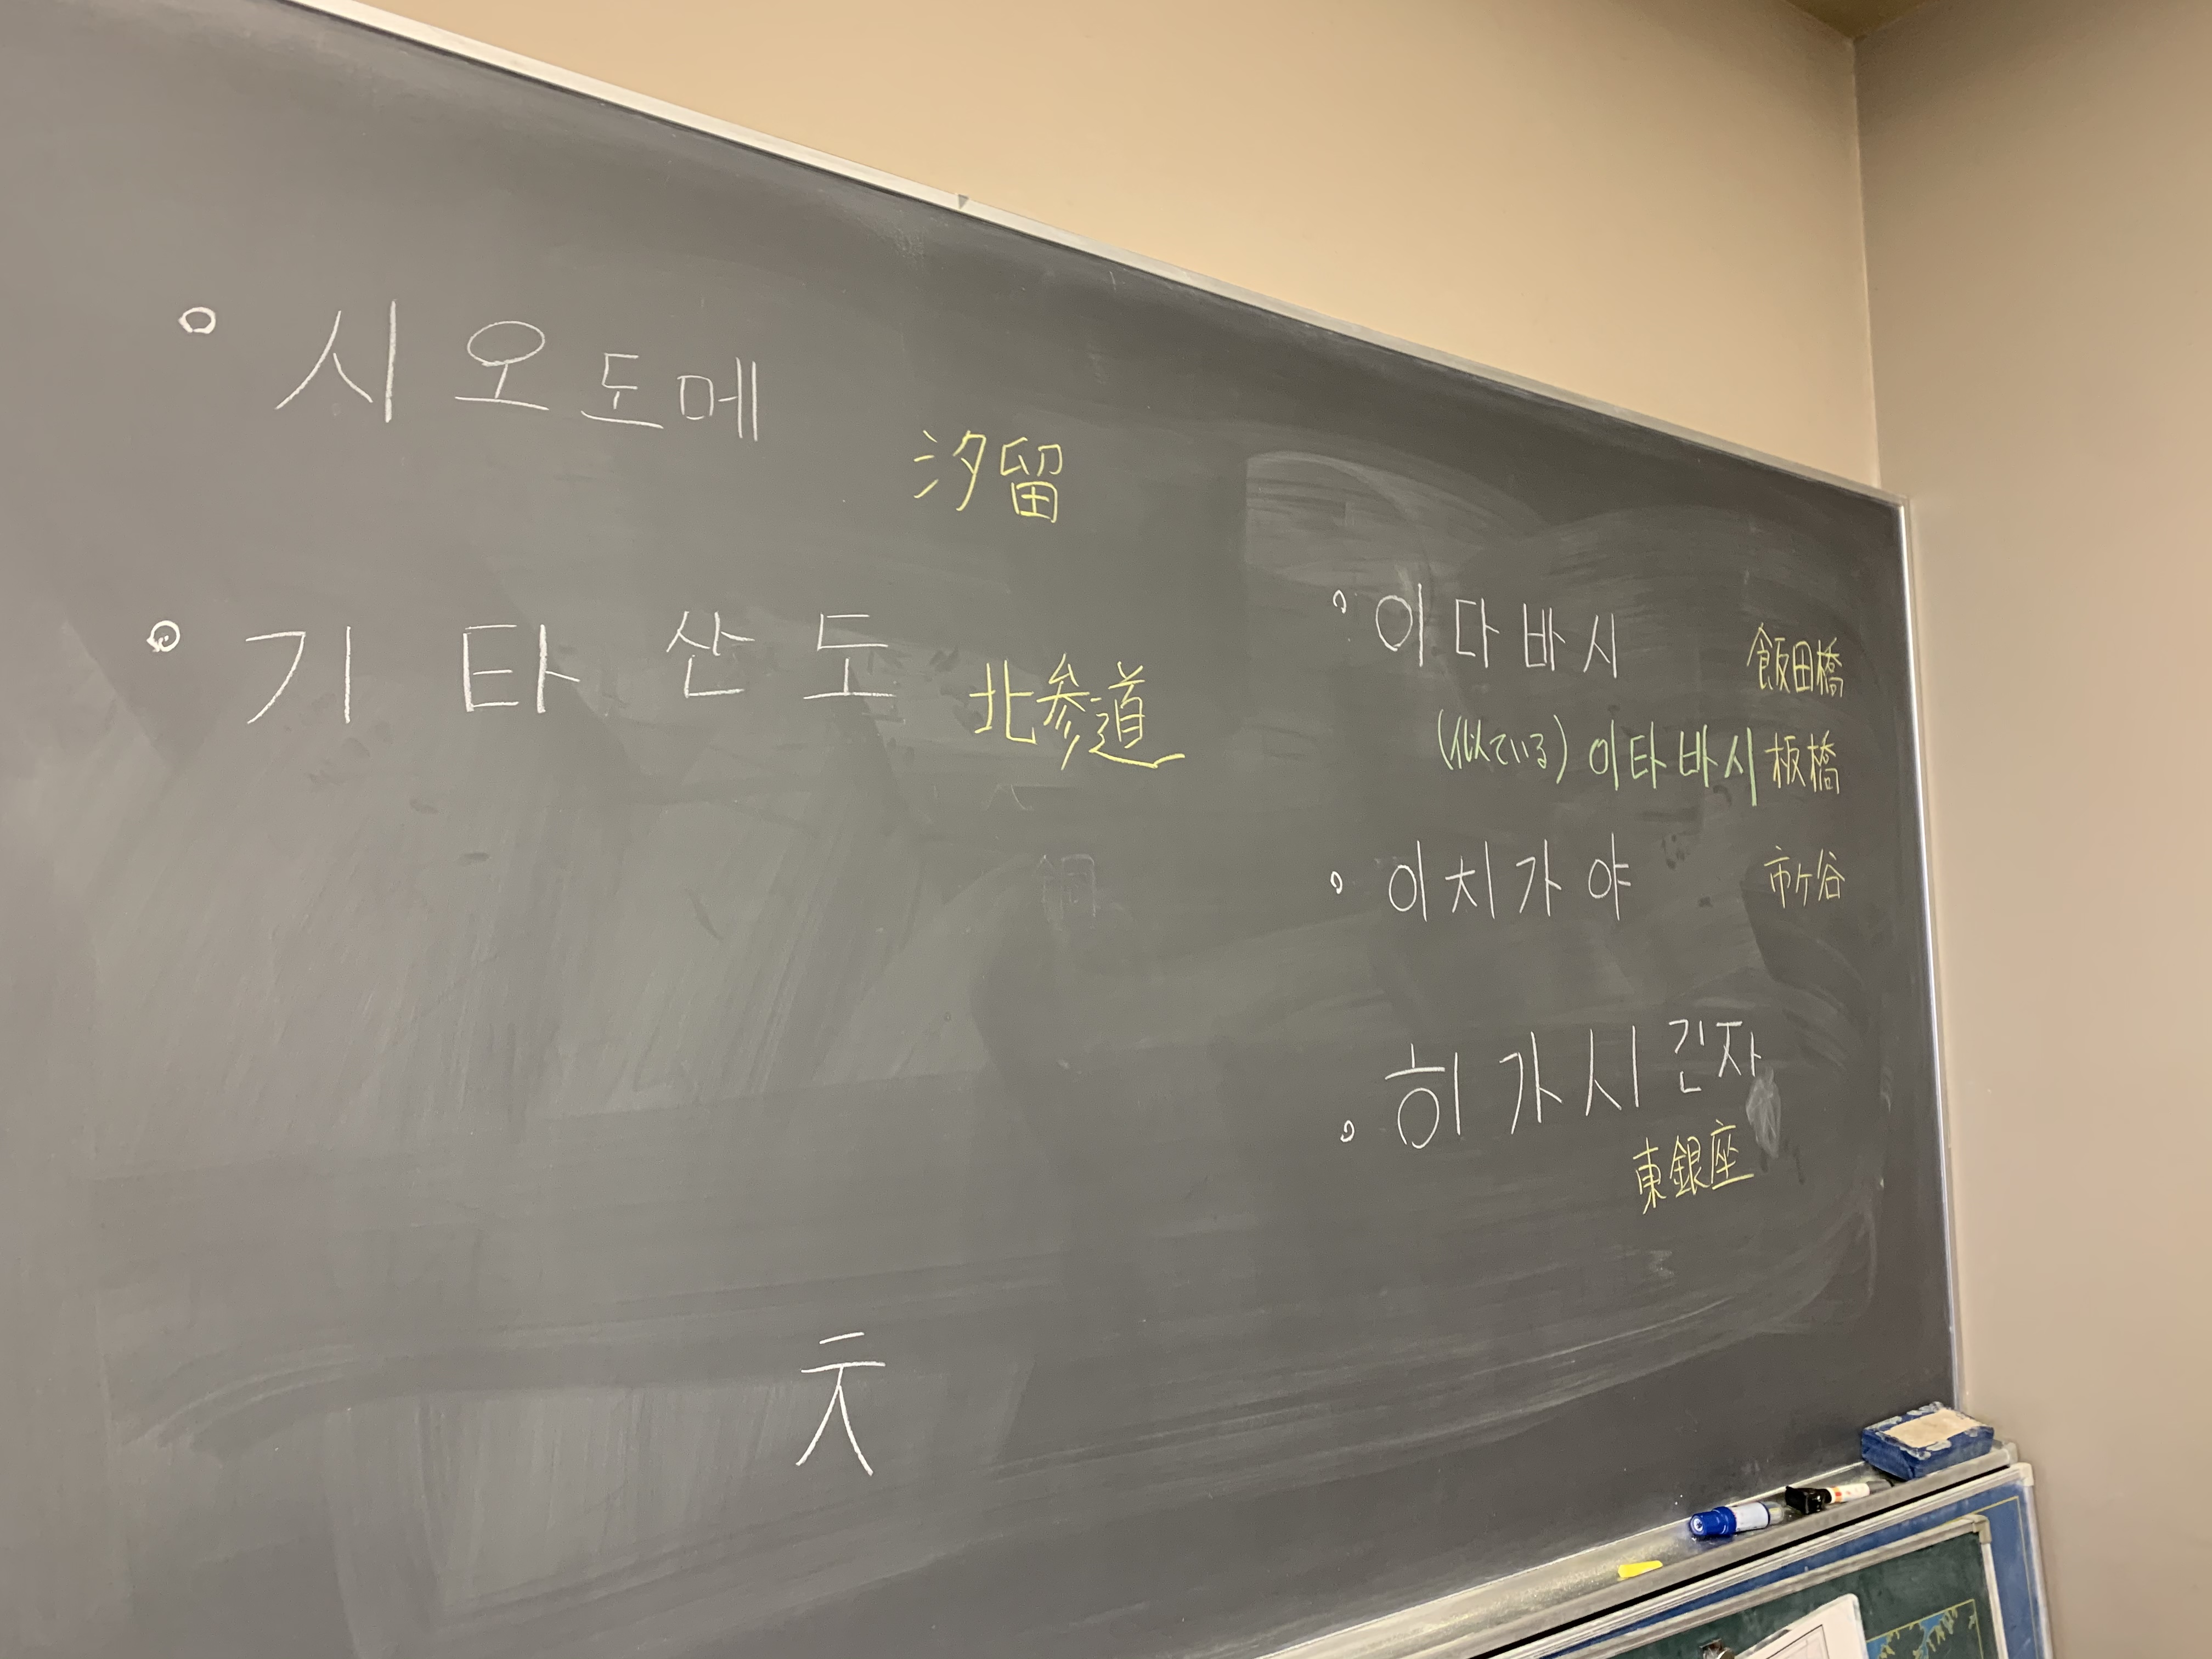 시오도메 汐留
기타산도 北参道
이다바시 飯田橋
(似ている) 이타바시 板橋
이치가야 市ヶ谷
히가시긴자
東銀座
ㅊ